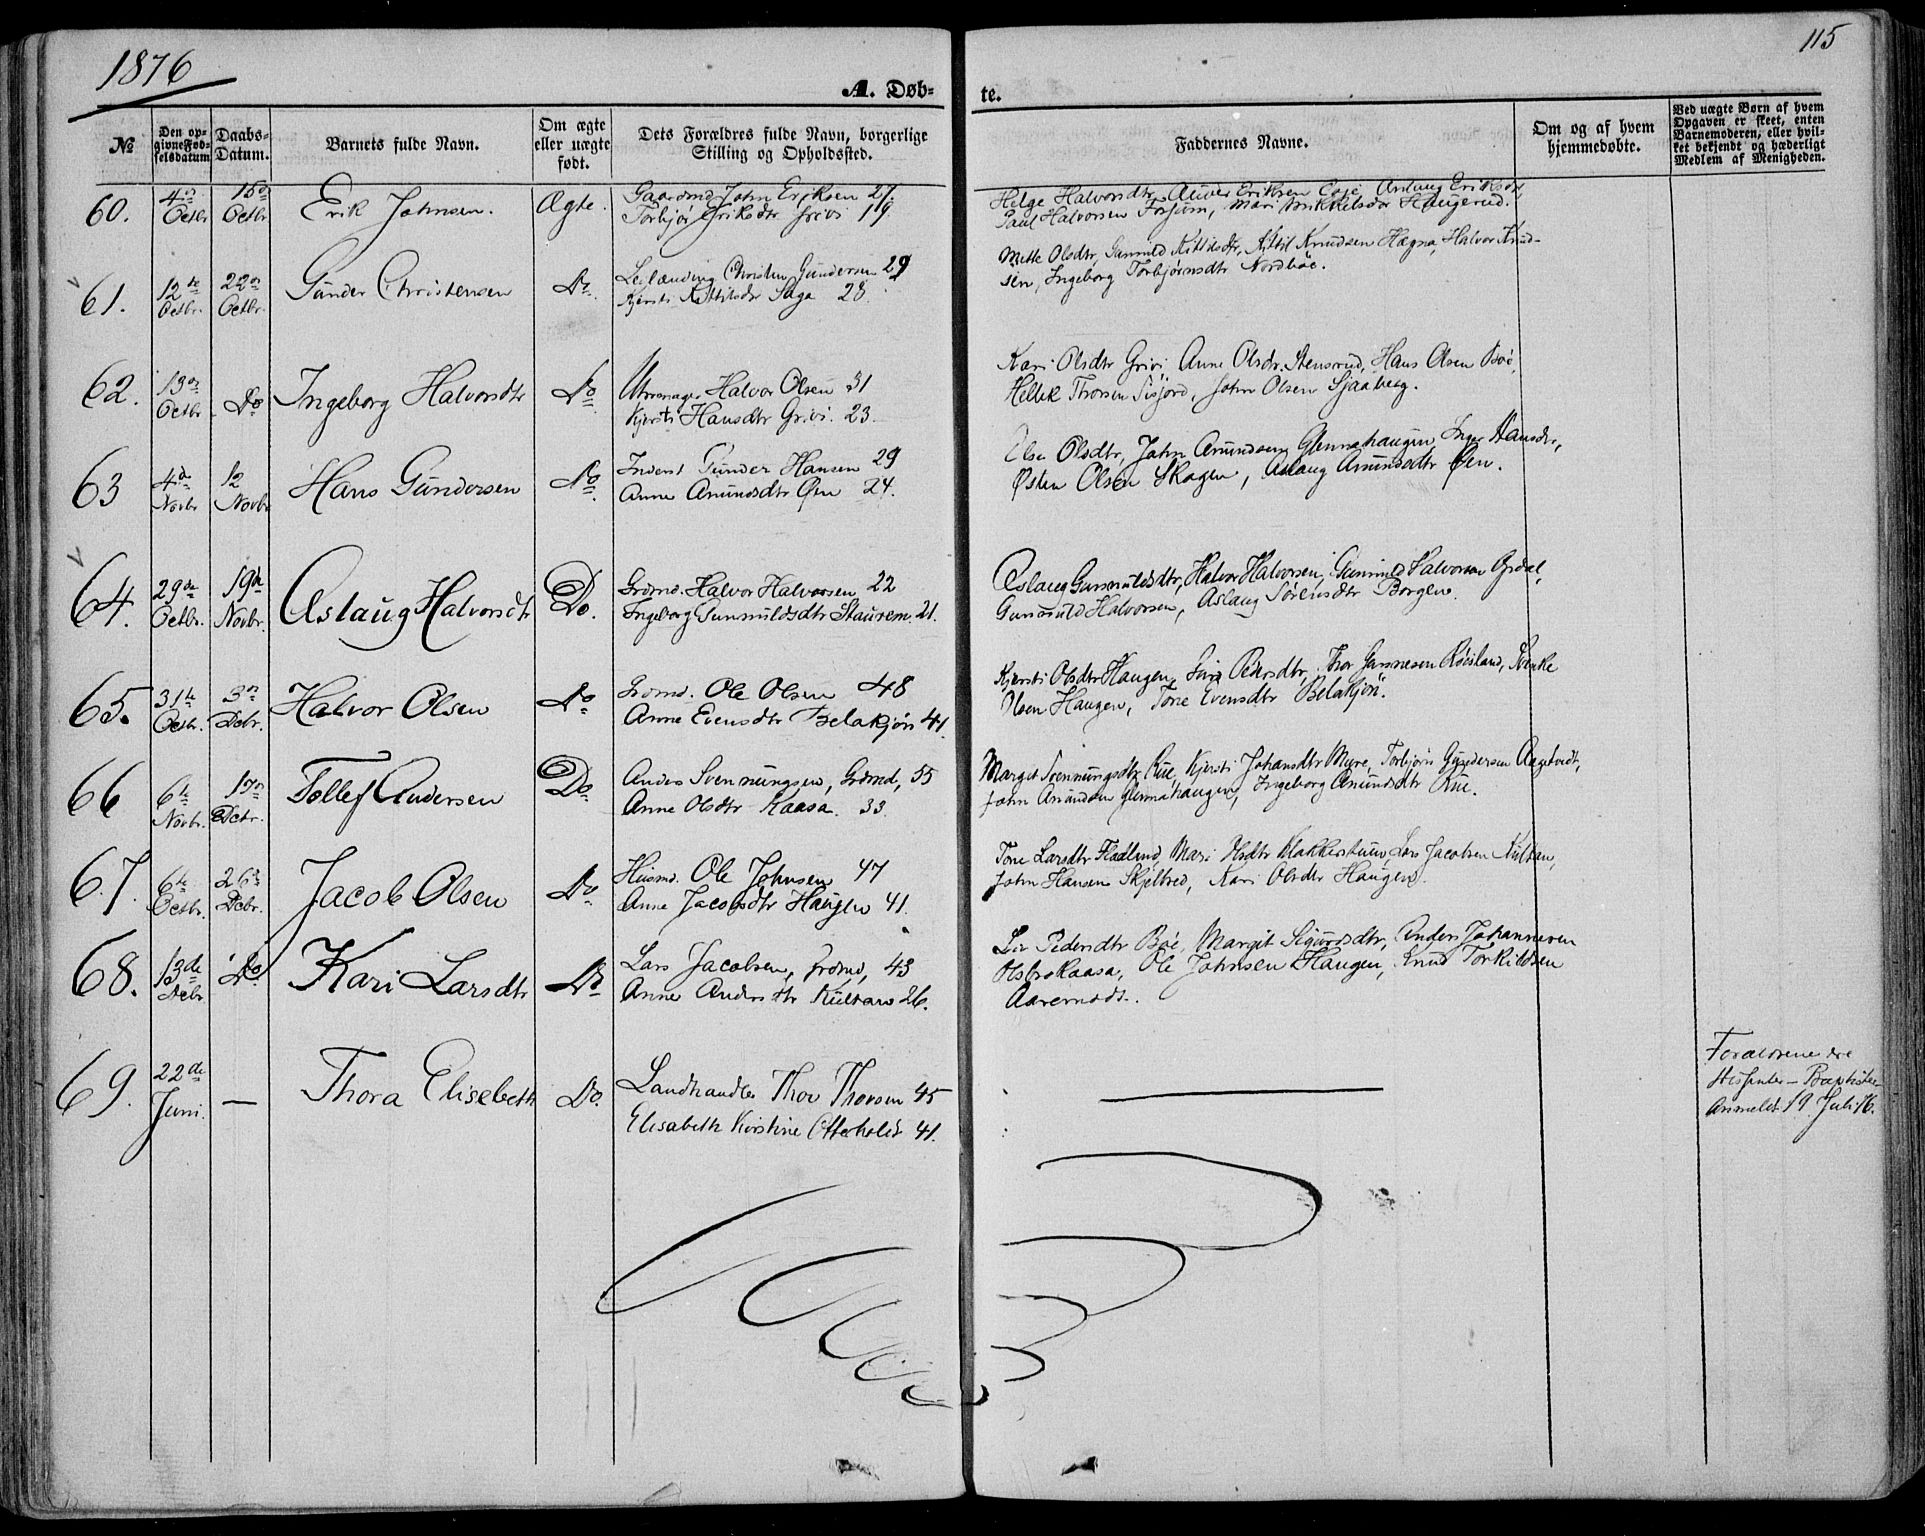 1876
115
A. Døb-
te.
№
Den op-
givne Fød-
selsdatum
Daabs-
Datum.
Barnets fulde Navn.
Om ægte
eller uægte
født.
Dets Forældres fulde Navn, borgerlige
Stilling og Opholdssted.
Faddernes Navne.
Om og af hvem
hjemmedøbte.
Ved uægte Børn af hvem
Opgaven er skeet, enten
Barnemoderen, eller hvil-
ket bekjendt og hæderligt
Medlem af Menigheden.
60. 4de Octbr 15de Octbr Erik Johnsen. Ægte.
Gaardmd John Eriksen 27.
Torbjør Eriksdtr Grivi 19
Helge Halvorsdtr, Eriksen Eriksdtr
Paul Halvorsen Forsum, Mari Mikkelsdtr Haugerud.
61. 12te Octbr. 22de Octbr. Gunder Christensen Do.
Leilænding Christen Gundersen 29
Kjersti Kittilsdtr Saga 28
Mette Olsdtr, Gunnild Kittilsdtr, Kittil Knudsen Hægna, Halvor Knud-
sen, Ingeborg Torbjørnsdtr Nordbøe.
62. 13de Octbr Do Ingeborg Halvorsdtr Do
Uhrmager Halvor Olsen 31
Kjersti Hansdtr Grivi. 23.
Kari Olsdtr Grivi, Anne Olsdtr Stensrud, Hans Olsen Boe,
Hellek Thorsen Sisjord, John Olsen Sjaaberg.
63 4de Novbr 12 Novbr Hans Gundersen Do.
Inderst Gunder Hansen 29
Anne Amundsdtr Øen 24.
Else Olsdtr, John Amundsen Glennehaugen, Inger Hansdtr,
Østen Olsen Skogen, Aslaug Amundsdtr Øen.
64. 29de Octbr. 19de Novbr. Aslaug Halvorsdtr Do.
Grdmd. Halvor Halvorsen 22
Ingeborg Gunnuldsdtr Staurem. 21.
Aslaug Gunnuldsdtr, Halvor Halvorsen, Gunnuld Halvorsen
Gunnuld Halvorsen, Aslaug Sørensdtr Borgen.
65. 31te Octbr. 3de Dcbr. Halvor Olsen Do
Grdmd. Ole Olsen 48
Anne Evensdtr Belakjøn 41.
Kjersti Olsdtr Haugen, Siri Pedersdtr, Thor Gunnesen Røisland, Svenke
Olsen Haugen, Tone Evensdtr Belakjøn.
66 6te Novbr. 17de Dcbr. Tollef Andersen Do.
Anders Svennungsen, Grdmd, 55
Anne Olsdtr Kaasa. 33.
Margit Svennungsdtr Rue, Kjersti Johansdtr Myre, Torbjørn Gundersen Aagetvedt,
John Amundsen Glennehaugen, Ingeborg Amundsdtr Rue.
67. 6te Octbr. 26de Dcbr. Jacob Olsen Do
Husmd. Ole Johnsen 47
Anne Jacobsdtr Haugen 41.
Tone Larsdtr Fladlund, Mari Olsdtr Klakkerstuen, Lars Jacobsen Kultan,
John Hansen Skjelbred, Kari Olsdtr Haugen.
68. 13de Dcbr Do Kari Larsdtr Do
Lars Jacobsen, Grdmd, 43
Anne Andersdtr Kultan 26.
Liv Pedersdtr Bøe, Margit Sigurdsdtr, Anders Johannesen
Olsbrokaasa, Ole Johnsen Haugen, Knud Torkildsen
Aarenæs.
69. 22de Juni. — Thora Elisebeth Do.
Landhandler Thor Thorsen 45
Elisabeth Kirstine Otterholdt 41.
Forældrene ere
Dissenter - Baptister
Anmeldt 19 Juli 76.